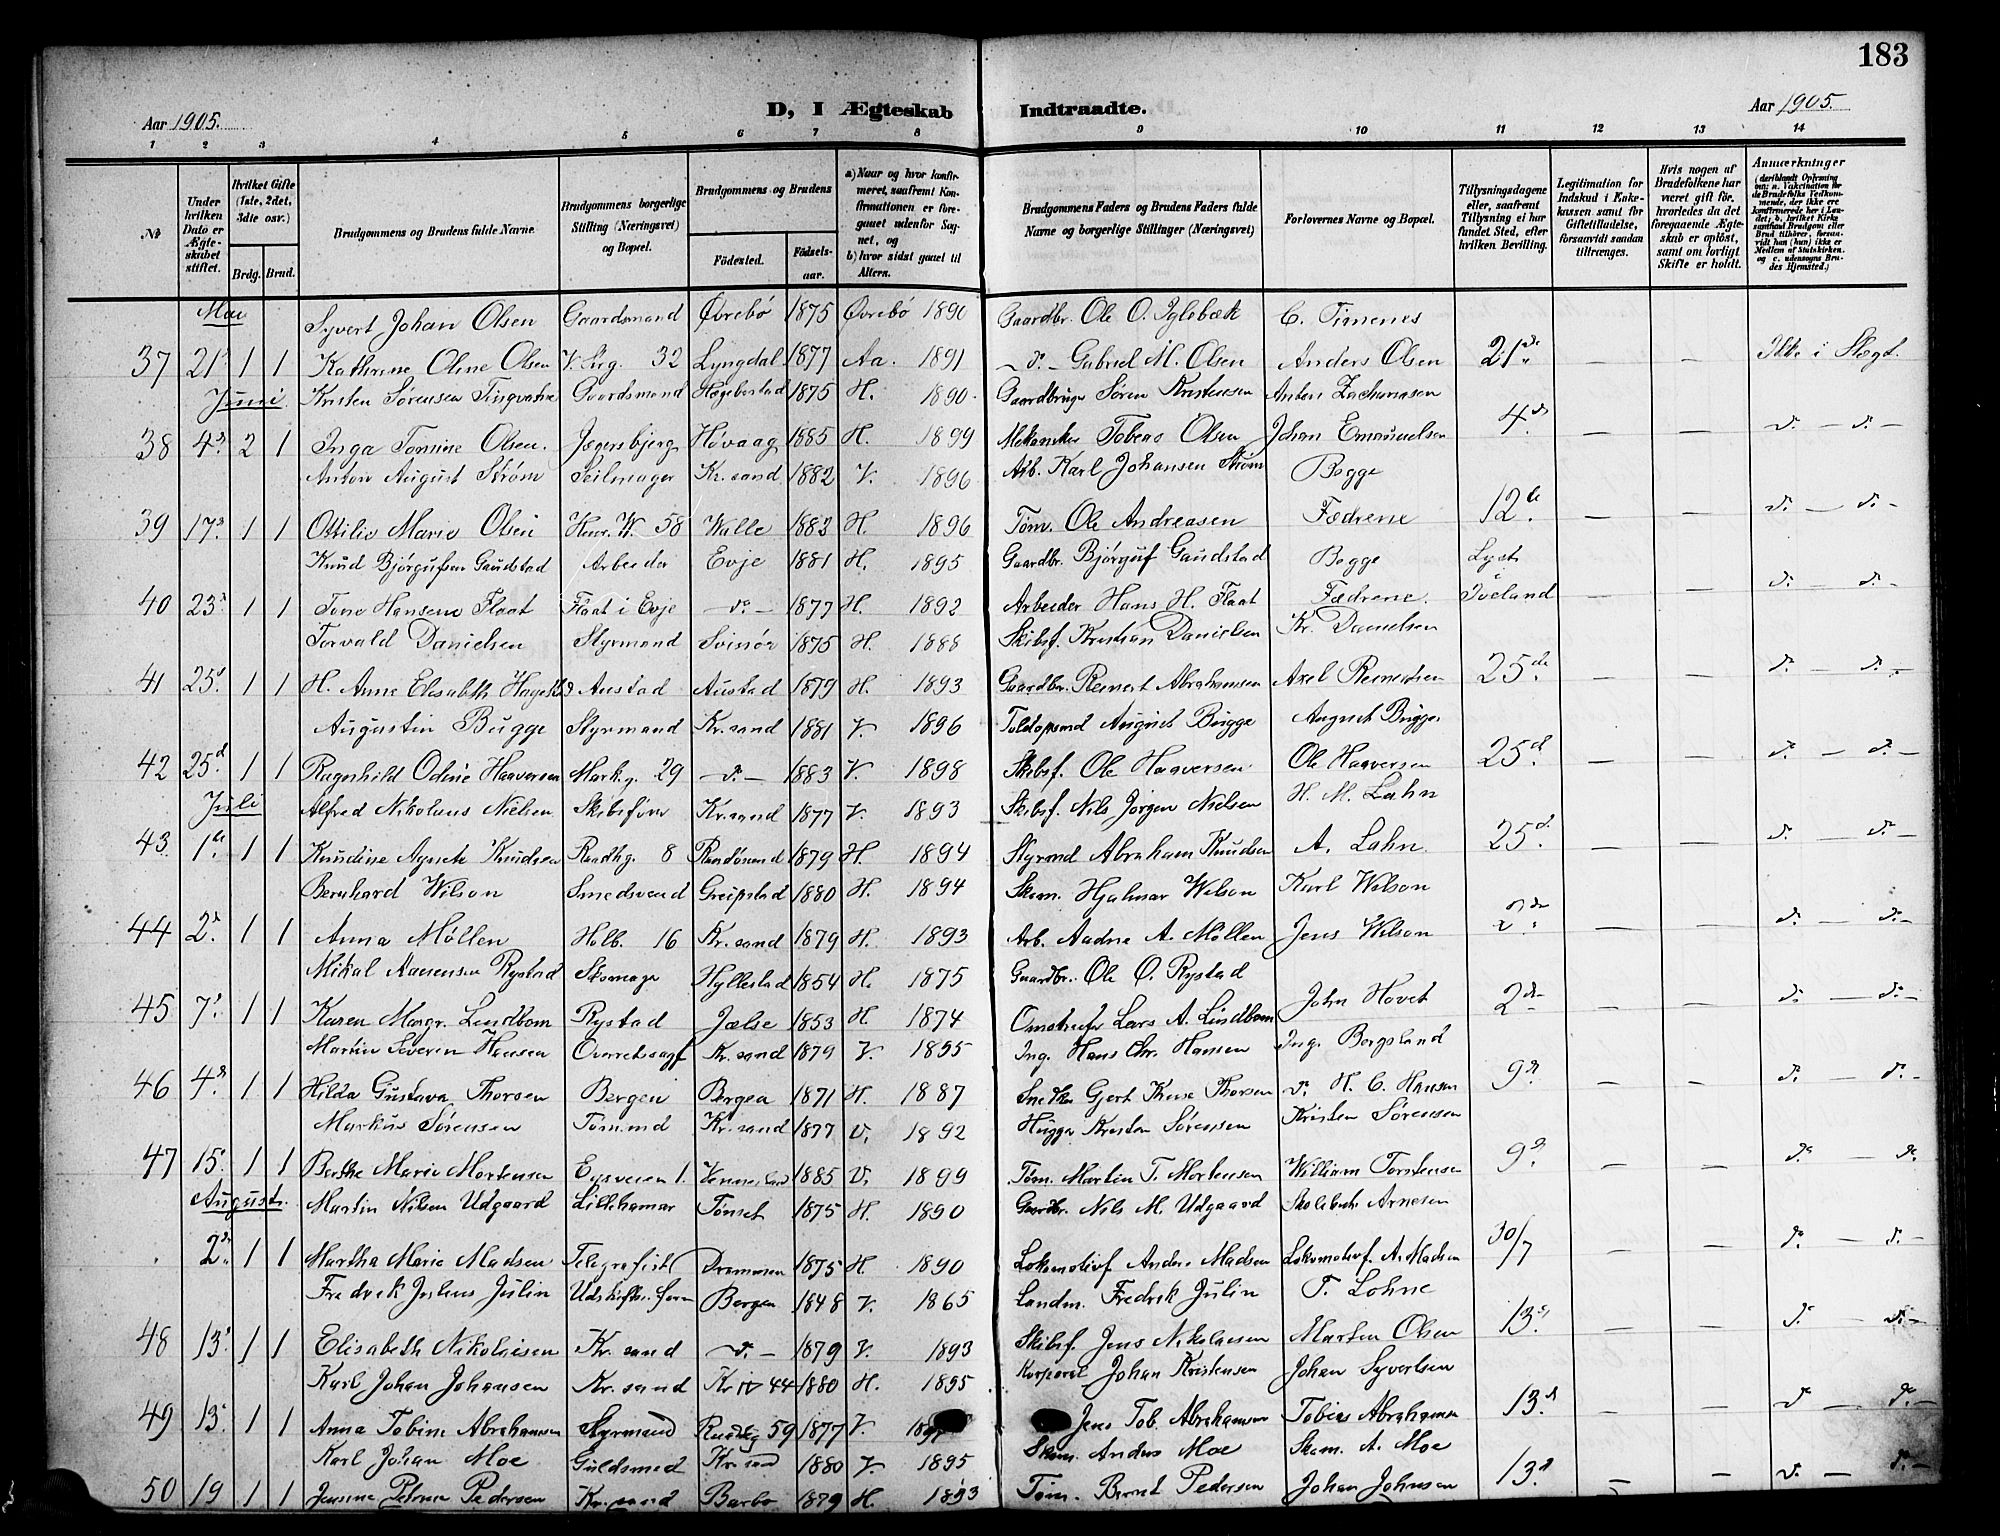 183
D, I Ægteskab Indtraadte.
Aar 1905. Aar 1905.
1 2 3 4 5 6 7 8 9 10 11 12 13 14
No.
Under hvilken Dato er Ægteskabet stiftet.
Hvilket Gifte (1ste, 2det, 3die osv.)
Brdg. Brud.
Brudgommens og Brudens fulde Navne.
Brudgommens borgerlige Stilling (Næringsvei) og Bopæl.
Brudgommens og Brudens
Fødested. Fødselsaar.
a) Naar og hvor konfirmeret, saafremt Konfirmationen er foregaaet udenfor Sognet, og
b) hvor sidst gaaet til Alters.
Brudgommens Faders og Brudens Faders fulde Navne og borgerlige Stillinger (Næringsvei)
Forlovernes Navne og Bopæl.
Tillysningsdagene eller, saafremt Tillysning ei har fundet Sted, efter hvilken Bevilling.
Legitimation for Indskud i Enkekassen samt for Giftetilladelse, forsaavidt saadan tiltrænges.
Hvis nogen af Brudefolkene har været gift før, hvorledes da det foregaaende Ægteskab er opløst, samt om lovligt Skifte er holdt.
Anmærkninger
Mai
Syvert Johan Olsen Gaardsmand Øvrebø 1875 Øvrebø 1890 Gaardbr. Ole O. Iglebæk C. Timenes
37 21 1 1 Kathrine Oline Olsen 32 Lyngdal 1877 Aa. 1891 d. Gabriel M. Olsen Anders Olsen 21de — — Ikke i Slægt.
Juni Kristen Sørensen Tingvatne Gaardsmand Hægebostad 1875 H. 1890 Gaardbruger Søren Kristensen Anders Zachariasen
38 4 2 1 Inga Tomine Olsen. Jegersbjerg Høvaag 1885 H. 1899 Tobias Olsen Johan Emanuelsen 4d — — d. — d. —
Anton August Strøm Seilmager Kr.sand 1882 V. 1896 Arb. Karl Johansen Strøm Begge
39 17 1 1 Ottilie Marie Olsen Henr. W. 58 Walle 1883 H. 1896 Tøm. Ole Andreasen Fædrene 12te — — d. — d. —
Knud Bjørgufsen Gaudstad Arbeider Evje 1881 H. 1895 Gaardbr. Bjørguf Gaudstad Begge Lyst
40 23 1 1 Tone Hansene Flaat Flaat i Evje d. 1877 H. 1892 Arbeider Hans H. Flaat Fædrene. Iveland — — d. — d. —
Torvald Danielsen Styrmand Svinør 1875 H. 1888 Skibsf. Kristian Danielsen Kr. Danielsen
41 25 1 1 H. Anne Elisabeth Austad Austad 1879 H. 1893 Gaardbr. Reinert Abrahamsen Axel Reinertsen 25de — — d. — d. —
Augustin Bugge Styrmand Kr.sand 1881 V. 1896 August Bugge August Bugge
42 25d 1 1 Ragnhild Odine Haaversen Markg. 29 d. 1883 V. 1898 Skibsf. Ole Haaversen Ole Haaversen 25d — — d. — d. —
Juli Alfred Nikolaus Nielsen Skibsfører Kr.sand 1877 V. 1893 Skibsf. Nils Jørgen Nielsen H. M. Lahn
43 1te 1 1 Knudine Agnete Knudsen Raadhg. 8 Randøsund 1879 H. 1894 Styrmd Abraham Knudsen A. Lahn 25d — — d. — d. —
Bernhard Wilson Smedsvend Greipstad 1880 H. 1894 Skom. Hjalmar Wilson Karl Wilson
44 2 1 1 Anna Møllen Holb. 16 Kr.sand 1879 H. 1893 Arb. Aadne A. Møllen Jens Wilson 2den — — d. — d. —
Mikal Aanensen Rystad Skomager Hyllestad 1854 H. 1875 Gaardbr. Ole O. Rystad
45 7 1 1 Karen Margr. Lindbom Rystad Jælse 1853 H. 1874 Lars A. Lindbom John Hovet 2den — — d. — d. —
Martin Severin Hansen Overretssagf Kr.sand 1879 V. 1895 Ing. Hans Chr. Hansen Ing. Borgsland
46 4d 1 1 Hilda Gustava Thorsen Bergen Bergen 1871 H. 1887 Snedker Gjert Thorsen d. H. C. Hansen 9d — — d. — d. —
Markus Sørensen Tømmd Kr.sand 1877 V. 1892 Kristen Sørensen Kristen Sørensen
47 15 1 1 Berthe Marie Mortensen Egsveien 1. 1885 V. 1899 Tøm. Martin T. Mortensen William Torstensen 9d — — d. — d.
August. Martin Nilsen Udgaard Lillehamar Tønset 1875 H. 1890 Gaardbr. Nils M. Udgaard Arnesen
2d 1 1 Martha Marie Madsen Telegrafist Drammen 1875 H. 1890 Lokomotivf. Anders Madsen Lokomotivf. A. Madsen 30/7 — — d. — d. —
Fredrik Julius Julin Bergen 1848 V. 1865 Landm. Fredrik Julin T. Lohne
48 13 1 1 Elisabeth Nikolaisen Kr.sand d. 1879 V. 1893 Skibsf. Jens Nikolaisen Marten Olsen 13d — — d. — d. —
Karl Johan Johansen Kr.sand Kr 44 1880 H. 1895 Korporal Johan Kristensen Johan Syvertsen
49 13 1 1 Anna Tobine Abrahamsen Styrmand 59 1877 V. Jens Tob. Abrahamsen Tobias Abrahamsen 13d — — d. — d.
Karl Johan Moe Guldsmed Kr.sand 1880 V. 1895 Skom. Anders Moe Skom. A. Moe
50 19 1 1 Pedersen Kr.sand Barbo 1879 H. 1893 Tøm. Bernt Pedersen Johan Johnsen 13d — — d. — d. —